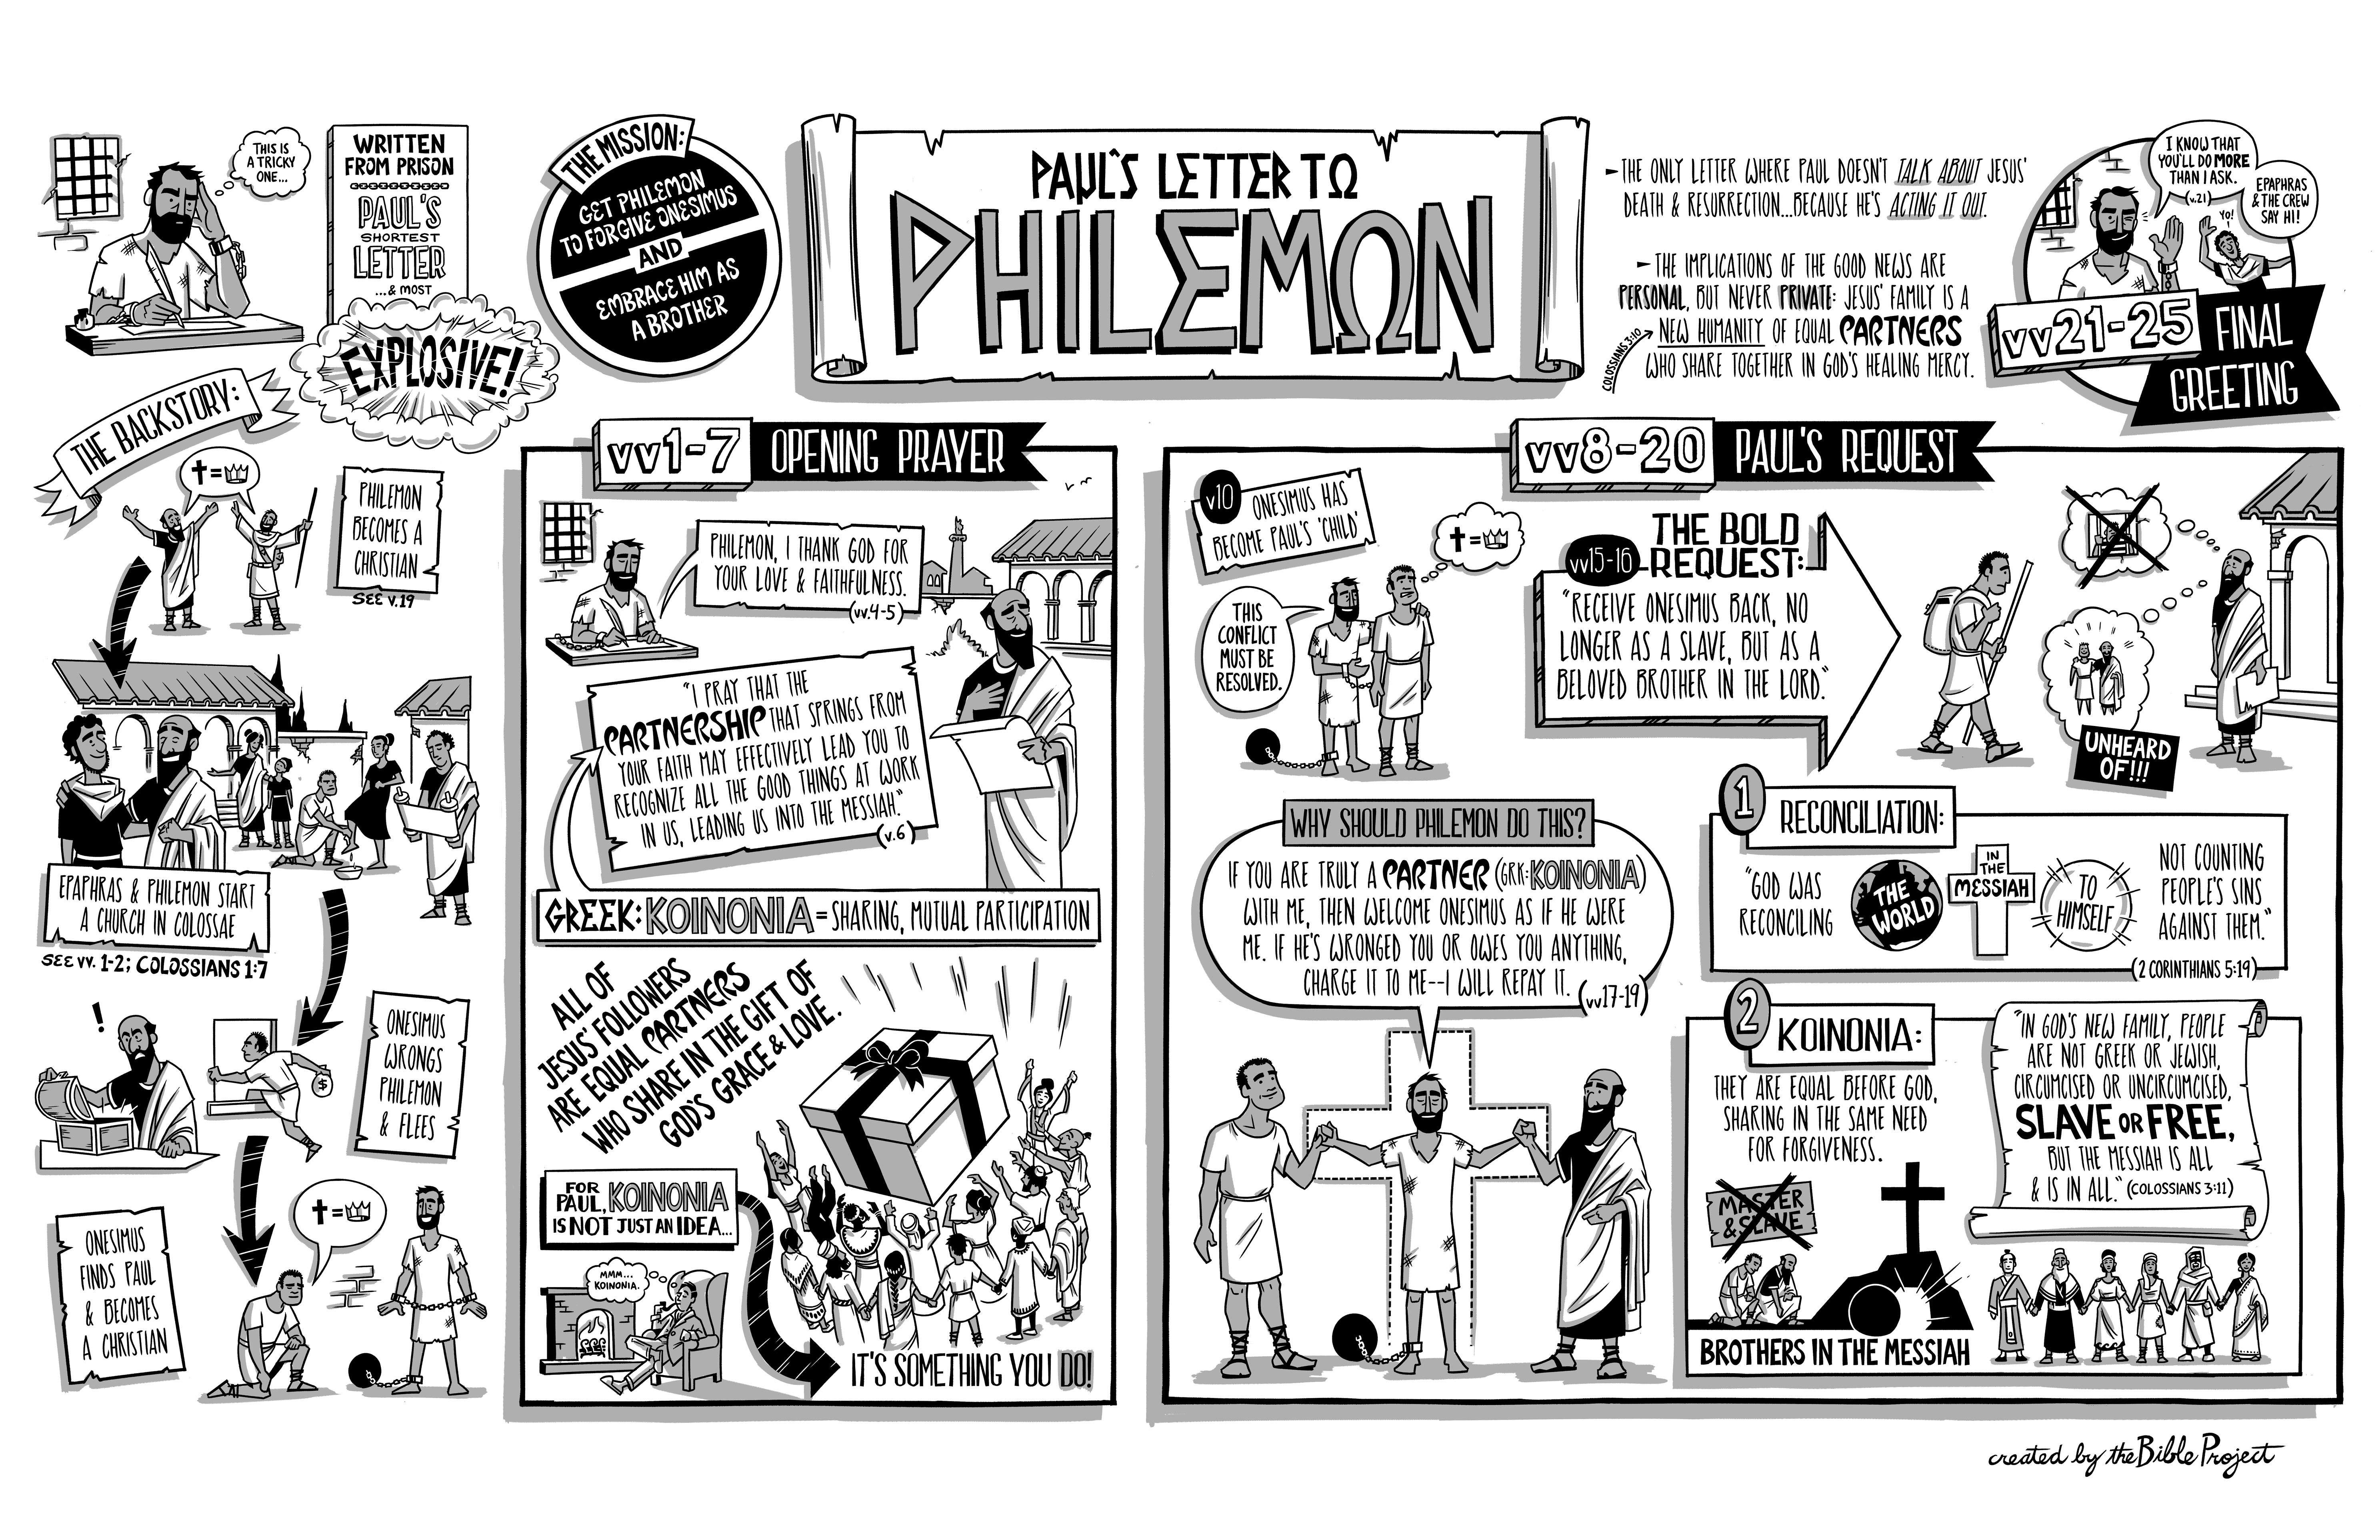 THIS IS
A TRICKY
ONE...
WRITTEN
FROM PRISON
PAUL'S
SHORTEST
LETTER
...& MOST
EXPLOSIVE!
THE MISSION:
GET PHILEMON
TO FORGIVE ONESIMUS
AND
EMBRACE HIM AS
A BROTHER
PAUL'S LETTER TO
PHILEMON
THE ONLY LETTER WHERE PAUL DOESN'T TALK ABOUT JESUS'
DEATH & RESURRECTION...BECAUSE HE'S ACTING IT OUT.
THE IMPLICATIONS OF THE GOOD NEWS ARE
PERSONAL, BUT NEVER PRIVATE: JESUS' FAMILY IS A
NEW HUMANITY OF EQUAL PARTNERS
WHO SHARE TOGETHER IN GOD'S HEALING MERCY.
COLOSSIANS 3:10
I KNOW THAT
YOU'LL DO MORE
THAN I ASK.
(v.21)
EPAPHRAS
& THE CREW
SAY HI!
YO!
vv21-25
FINAL
GREETING
THE BACKSTORY:
PHILEMON
BECOMES A
CHRISTIAN
SEE v.19
EPAPHRAS & PHILEMON START
A CHURCH IN COLOSSAE
SEE vv. 1-2; COLOSSIANS 1:7
!
$
ONESIMUS
WRONGS
PHILEMON
& FLEES
ONESIMUS
FINDS PAUL
& BECOMES
A CHRISTIAN
vv1-7 OPENING PRAYER
PHILEMON, I THANK GOD FOR
YOUR LOVE & FAITHFULNESS.
(vv.4-5)
"I PRAY THAT THE
PARTNERSHIP THAT SPRINGS FROM
YOUR FAITH MAY EFFECTIVELY LEAD YOU TO
RECOGNIZE ALL THE GOOD THINGS AT WORK
IN US, LEADING US INTO THE MESSIAH."
(v.6)
GREEK: KOINONIA = SHARING, MUTUAL PARTICIPATION
ALL OF
JESUS' FOLLOWERS
ARE EQUAL PARTNERS
WHO SHARE IN THE GIFT OF
GOD'S GRACE & LOVE.
FOR
PAUL, KOINONIA
IS NOT JUST AN IDEA...
MMM...
KOINONIA.
IT'S SOMETHING YOU DO!
vv8-20 PAUL'S REQUEST
v10 ONESIMUS HAS
BECOME PAUL'S 'CHILD'
THIS
CONFLICT
MUST BE
RESOLVED.
vv15-16
THE BOLD
REQUEST:
"RECEIVE ONESIMUS BACK, NO
LONGER AS A SLAVE, BUT AS A
BELOVED BROTHER IN THE LORD."
UNHEARD
OF!!!
WHY SHOULD PHILEMON DO THIS?
IF YOU ARE TRULY A PARTNER (GRK: KOINONIA)
WITH ME, THEN WELCOME ONESIMUS AS IF HE WERE
ME. IF HE'S WRONGED YOU OR OWES YOU ANYTHING,
CHARGE IT TO ME--I WILL REPAY IT.
(vv17-19)
1 RECONCILIATION:
"GOD WAS
RECONCILING
THE
WORLD
IN
THE
MESSIAH
TO
HIMSELF
NOT COUNTING
PEOPLE'S SINS
AGAINST THEM."
(2 CORINTHIANS 5:19)
2 KOINONIA:
THEY ARE EQUAL BEFORE GOD,
SHARING IN THE SAME NEED
FOR FORGIVENESS.
MASTER
& SLAVE
BROTHERS IN THE MESSIAH
"IN GOD'S NEW FAMILY, PEOPLE
ARE NOT GREEK OR JEWISH,
CIRCUMCISED OR UNCIRCUMCISED,
SLAVE OR FREE,
BUT THE MESSIAH IS ALL
& IS IN ALL." (COLOSSIANS 3:11)
created by the Bible Project